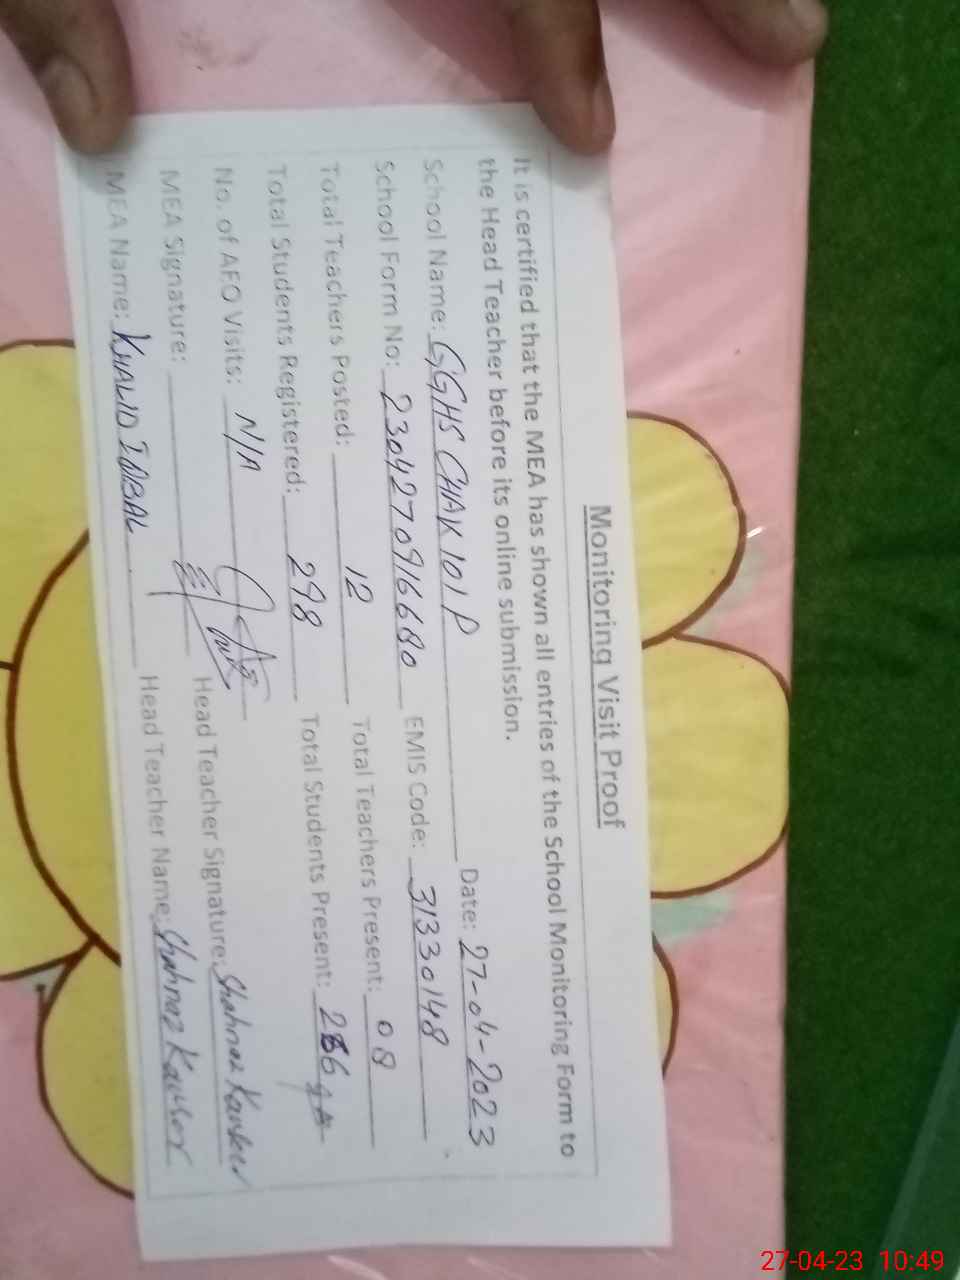 Monitoring Visit Proof
It is certified that the MEA has shown all entries of the School Monitoring Form to
the Head Teacher before its online submission.
School Name: GGHS CHAK 101 P Date: 27-04-2023
School Form No: 2304270916680 EMIS Code: 31330148
Total Teachers Posted: 12 Total Teachers Present: 08
Total Students Registered: 298 Total Students Present:
No. of AEO Visits: N/A
MEA Signature: Head Teacher Signature: Shahnaz Kausar
MEA Name: KHALID IQBAL Head Teacher Name: Shahnaz Kausar
27-04-23 10:49